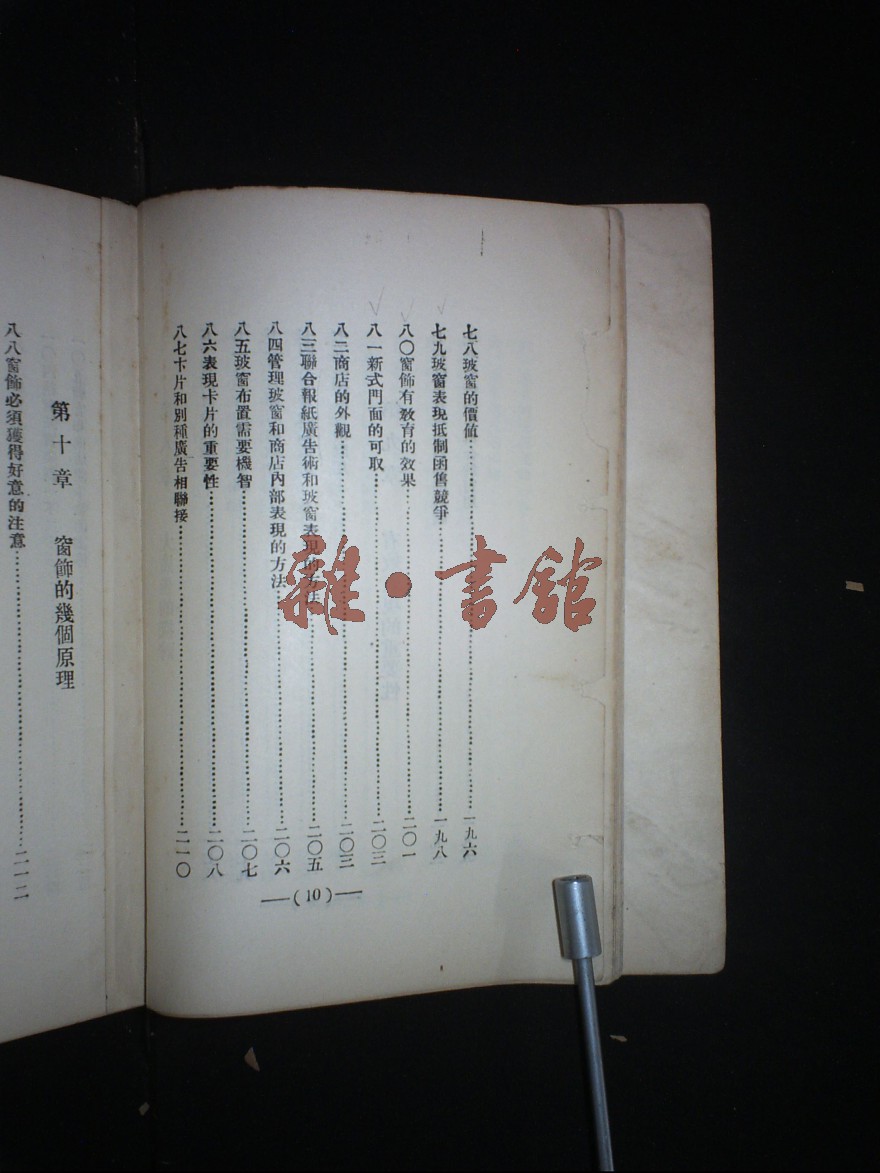 七八玻窗的價值……一九六
七九玻窗表現抵制函售競爭……一九八
八〇窗飾有教育的效果……二〇一
八一新式門面的可取……二〇二
八二商店的外觀……二〇三
八三聯合報紙廣告術和玻窗表現的方法……二〇五
八四管理玻窗和商店內部表現的方法……二〇六
八五玻窗布置需要機智……二〇七
八六表現卡片的重要性……二〇八
八七卡片和別種廣告相聯接……二一〇
—(10)—
第十章 窗飾的幾個原理
八八窗飾必須獲得好意的注意……二一二
雜·書館